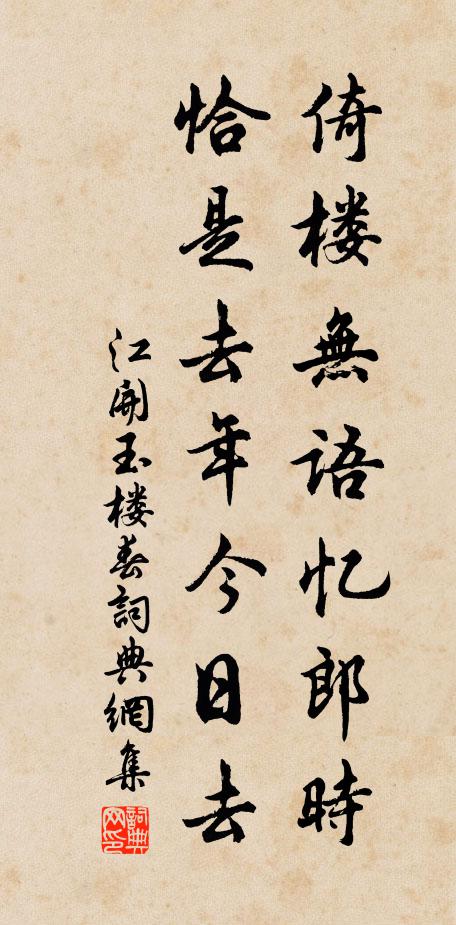 倚楼無語忆郎時
恰是去年今日去
江開玉楼春詞典網集
詞典
网印